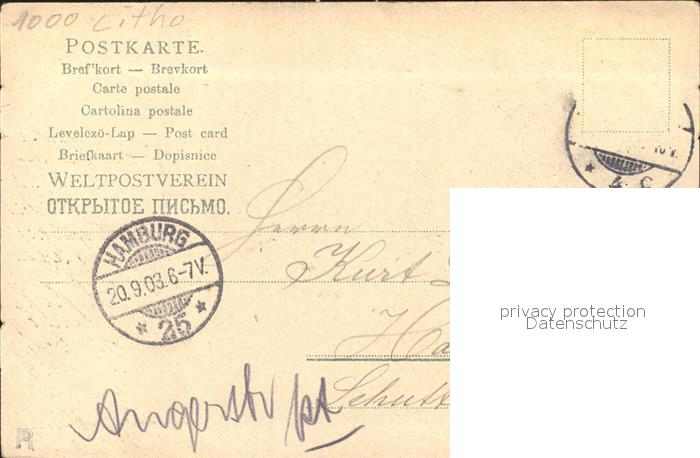 1000 Litho
POSTKARTE.
Bref'kort — Brevkort
Carte postale
Cartolina postale
Levelező-Lap — Post card
Briefkaart — Dopisnice
WELTPOSTVEREIN
ОТКРЫТОЕ ПИСЬМО.
HAMBURG
20.9.03.6-7V.
* 25 *
Herrn
Kurt
privacy protection
Datenschutz